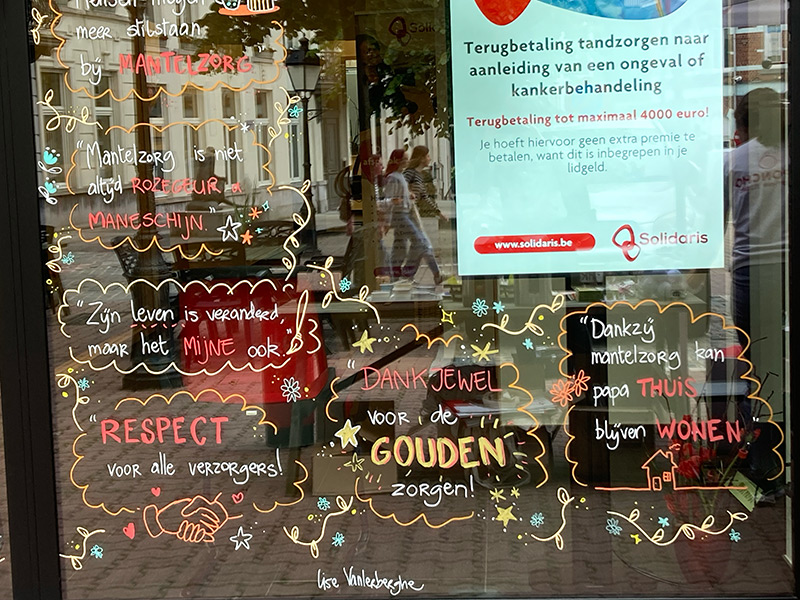 Mensen mogen
meer stilstaan
bij MANTELZORG"
"Mantelzorg is niet
altijd ROZEGEUR &
MANESCHIJN."
"Zijn leven is veranderd
maar het MIJNE ook."
"RESPECT
voor alle verzorgers!
"DANKJEWEL
voor de
GOUDEN
zorgen!
"Dankzij
mantelzorg kan
papa THUIS
blijven WONEN"
Lise Vanlerberghe
Terugbetaling tandzorgen naar
aanleiding van een ongeval of
kankerbehandeling
Terugbetaling tot maximaal 4000 euro!
Je hoeft hiervoor geen extra premie te
betalen, want dit is inbegrepen in je
lidgeld.
www.solidaris.be
Solidaris